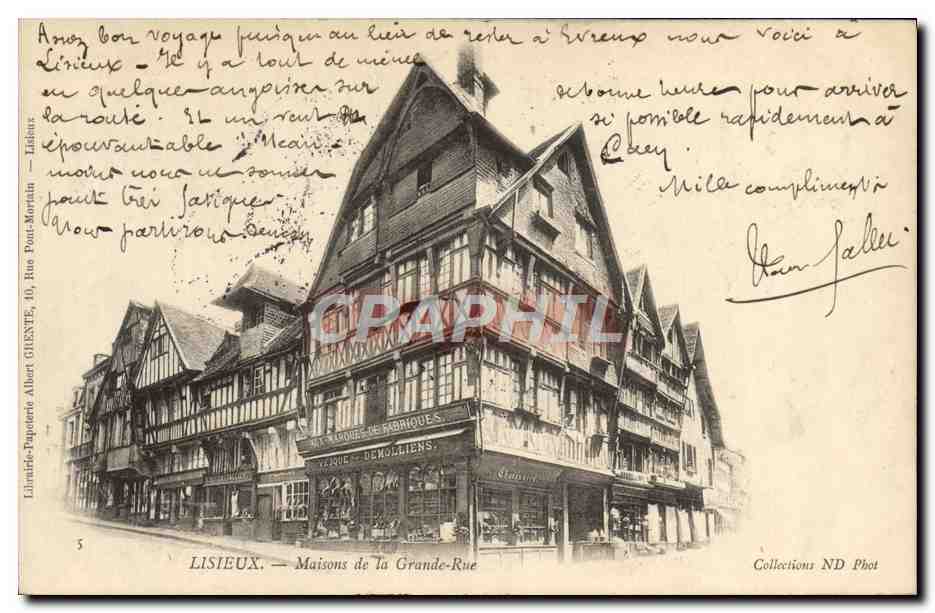 Assez bon voyage puisqu'au lieu de rester à Evreux nous voici à
Lisieux - Il y a tout de même
eu quelque angoisse sur
la route. Et un vent
épouvantable. Nean-
moins nous ne sommes
point très fatigués
Nous partirons demain
de bonne heure pour arriver
si possible rapidement à
Caen.
Mille compliments
Librairie-Papeterie Albert GRENTE, 10, Rue Pont-Mortain — Lisieux
CPAPHIL
AUX MARQUES DE FABRIQUES.
DEMOLLIENS.
5
LISIEUX. — Maisons de la Grande-Rue
Collections ND Phot